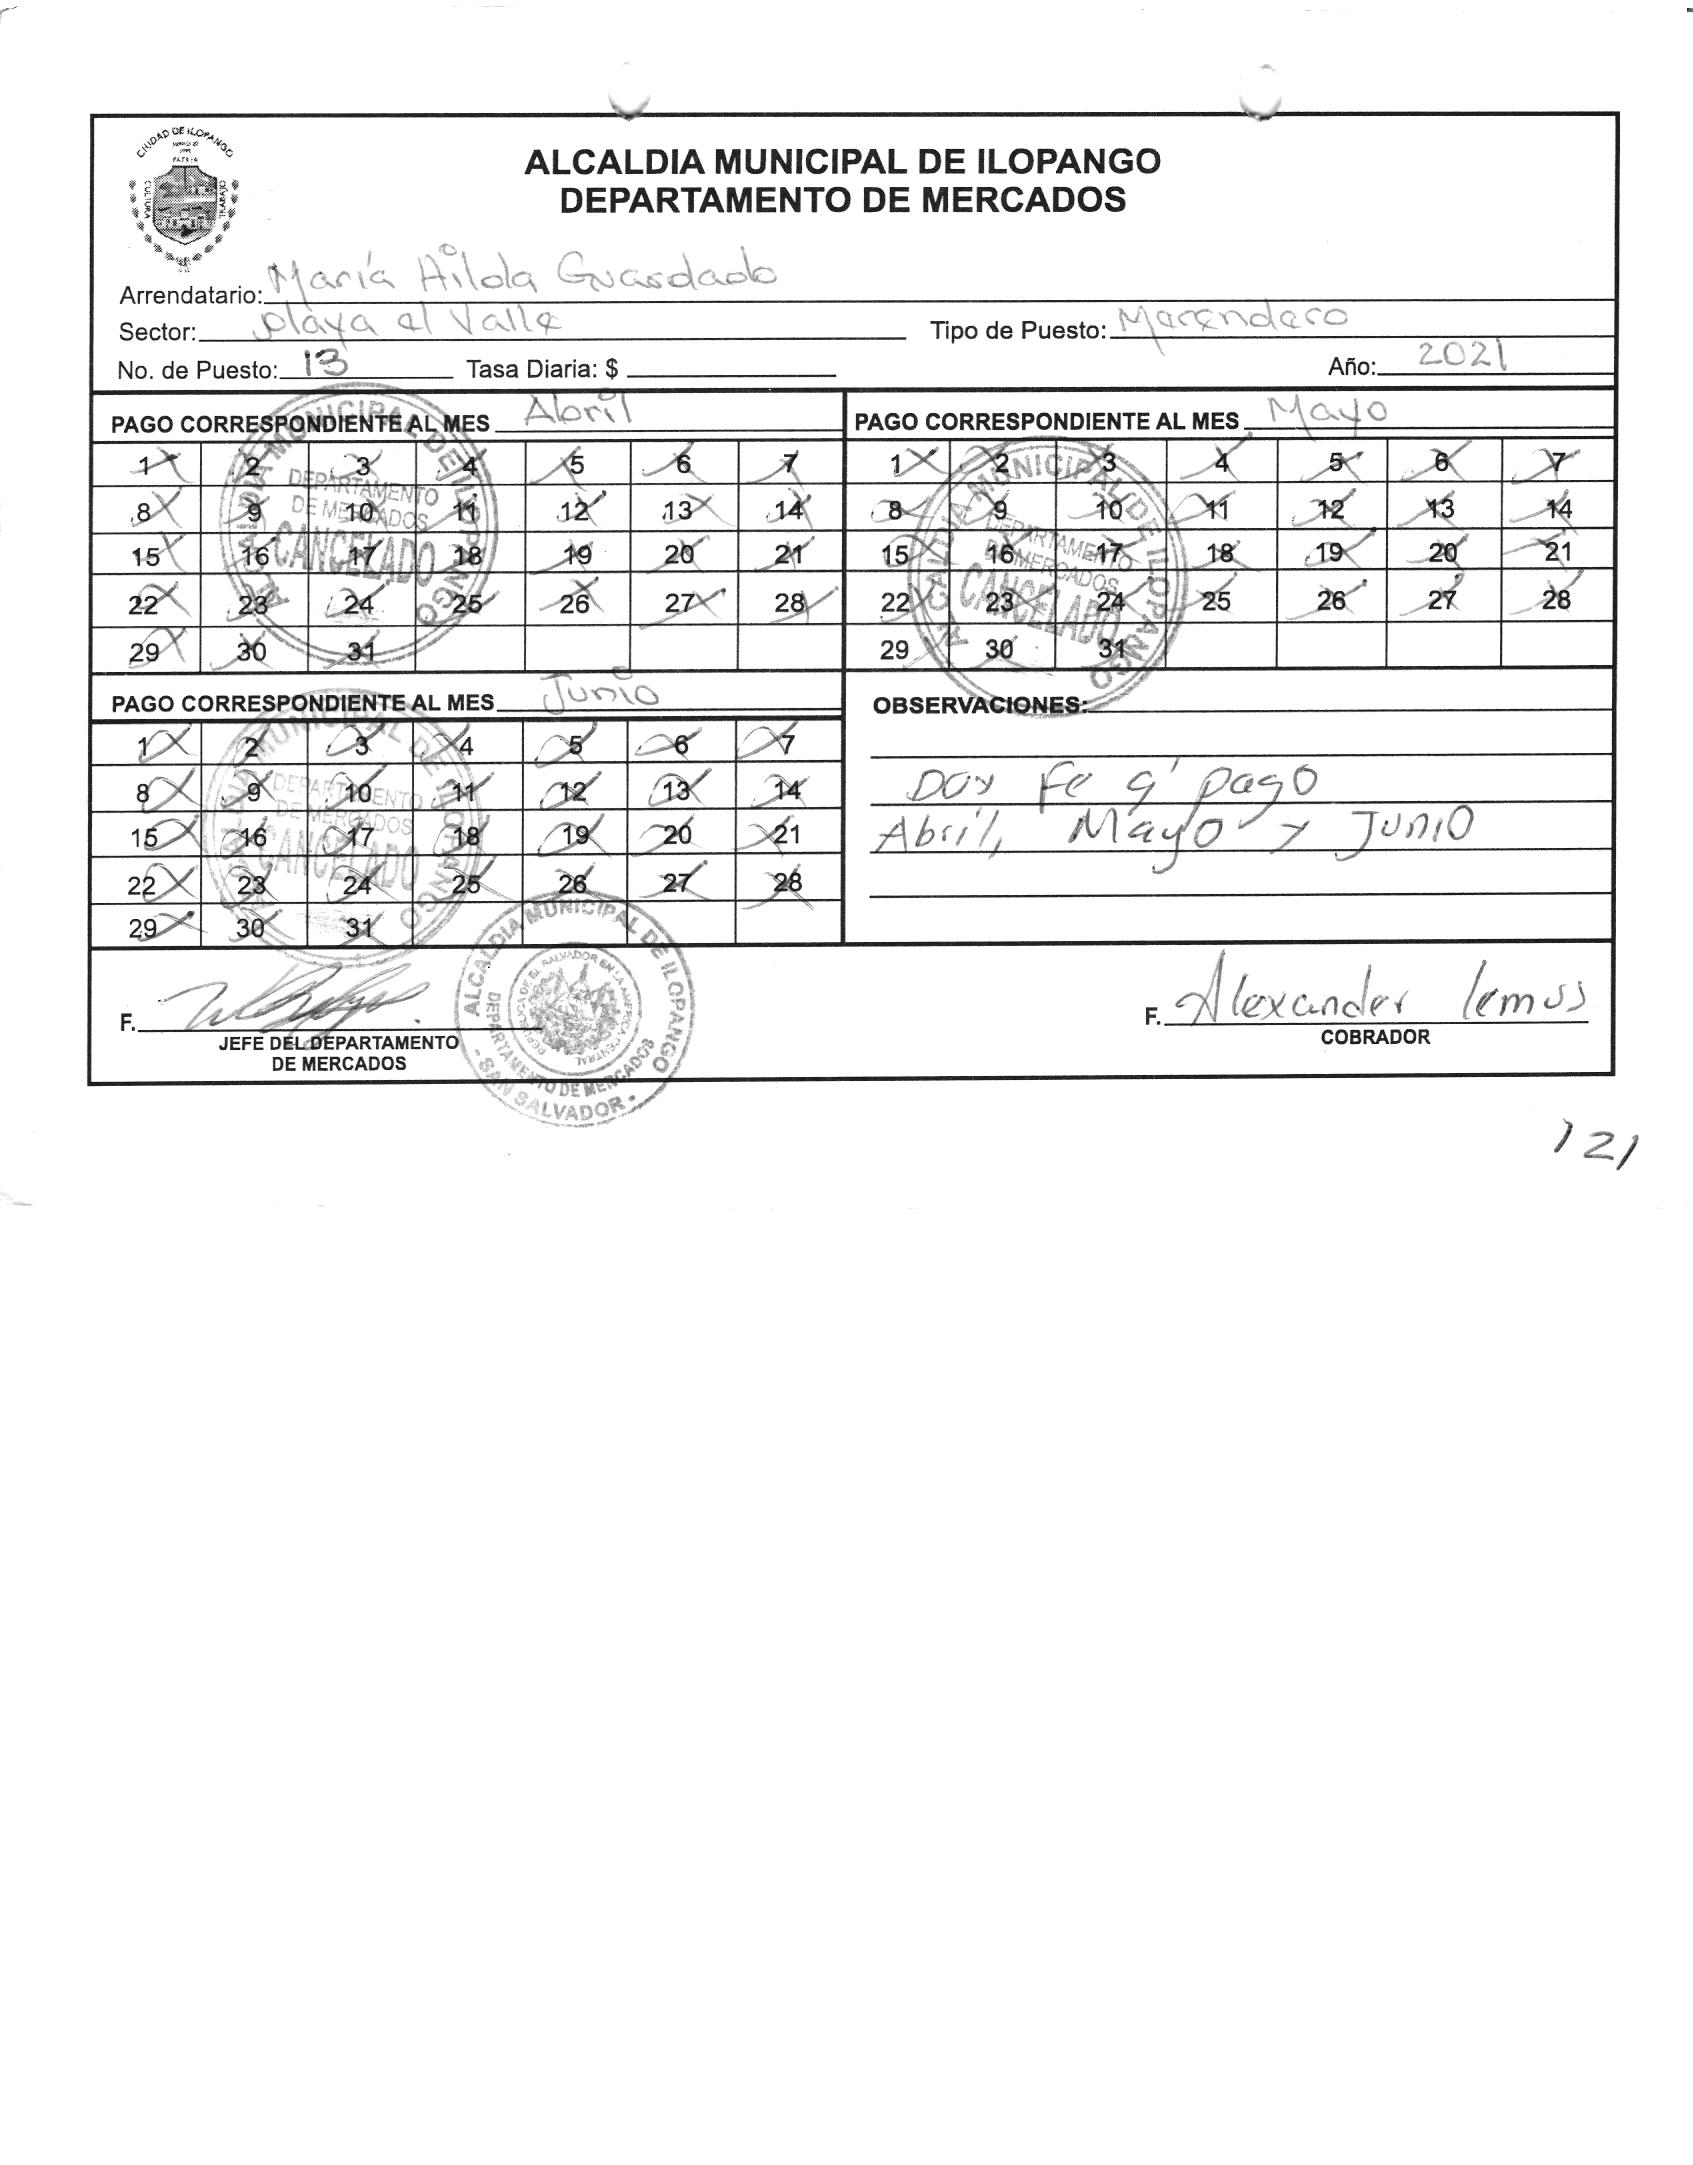 CIUDAD DE ILOPANGO
PATRIA
CULTURA
TRABAJO
ALCALDIA MUNICIPAL DE ILOPANGO
DEPARTAMENTO DE MERCADOS
Arrendatario: María Hilda Guardado
Sector: playa el Valle Tipo de Puesto: Merendero
No. de Puesto: 13 Tasa Diaria: $ Año: 2021
PAGO CORRESPONDIENTE AL MES Abril
1 2 3 4 5 6 7
8 9 10 11 12 13 14
15 16 17 18 19 20 21
22 23 24 25 26 27 28
29 30 31
ALCALDIA MUNICIPAL DE ILOPANGO
DEPARTAMENTO
DE MERCADOS
CANCELADO
PAGO CORRESPONDIENTE AL MES Mayo
1 2 3 4 5 6 7
8 9 10 11 12 13 14
15 16 17 18 19 20 21
22 23 24 25 26 27 28
29 30 31
ALCALDIA MUNICIPAL DE ILOPANGO
DEPARTAMENTO
DE MERCADOS
CANCELADO
PAGO CORRESPONDIENTE AL MES Junio
1 2 3 4 5 6 7
8 9 10 11 12 13 14
15 16 17 18 19 20 21
22 23 24 25 26 27 28
29 30 31
ALCALDIA MUNICIPAL DE ILOPANGO
DEPARTAMENTO
DE MERCADOS
CANCELADO
OBSERVACIONES:
Doy Fe q' pago
Abril, Mayo y Junio
F.
JEFE DEL DEPARTAMENTO
DE MERCADOS
ALCALDIA MUNICIPAL DE ILOPANGO
DEPARTAMENTO DE MERCADOS
REPUBLICA DE EL SALVADOR EN LA AMERICA CENTRAL
- SAN SALVADOR -
F. Alexander lemus
COBRADOR
121